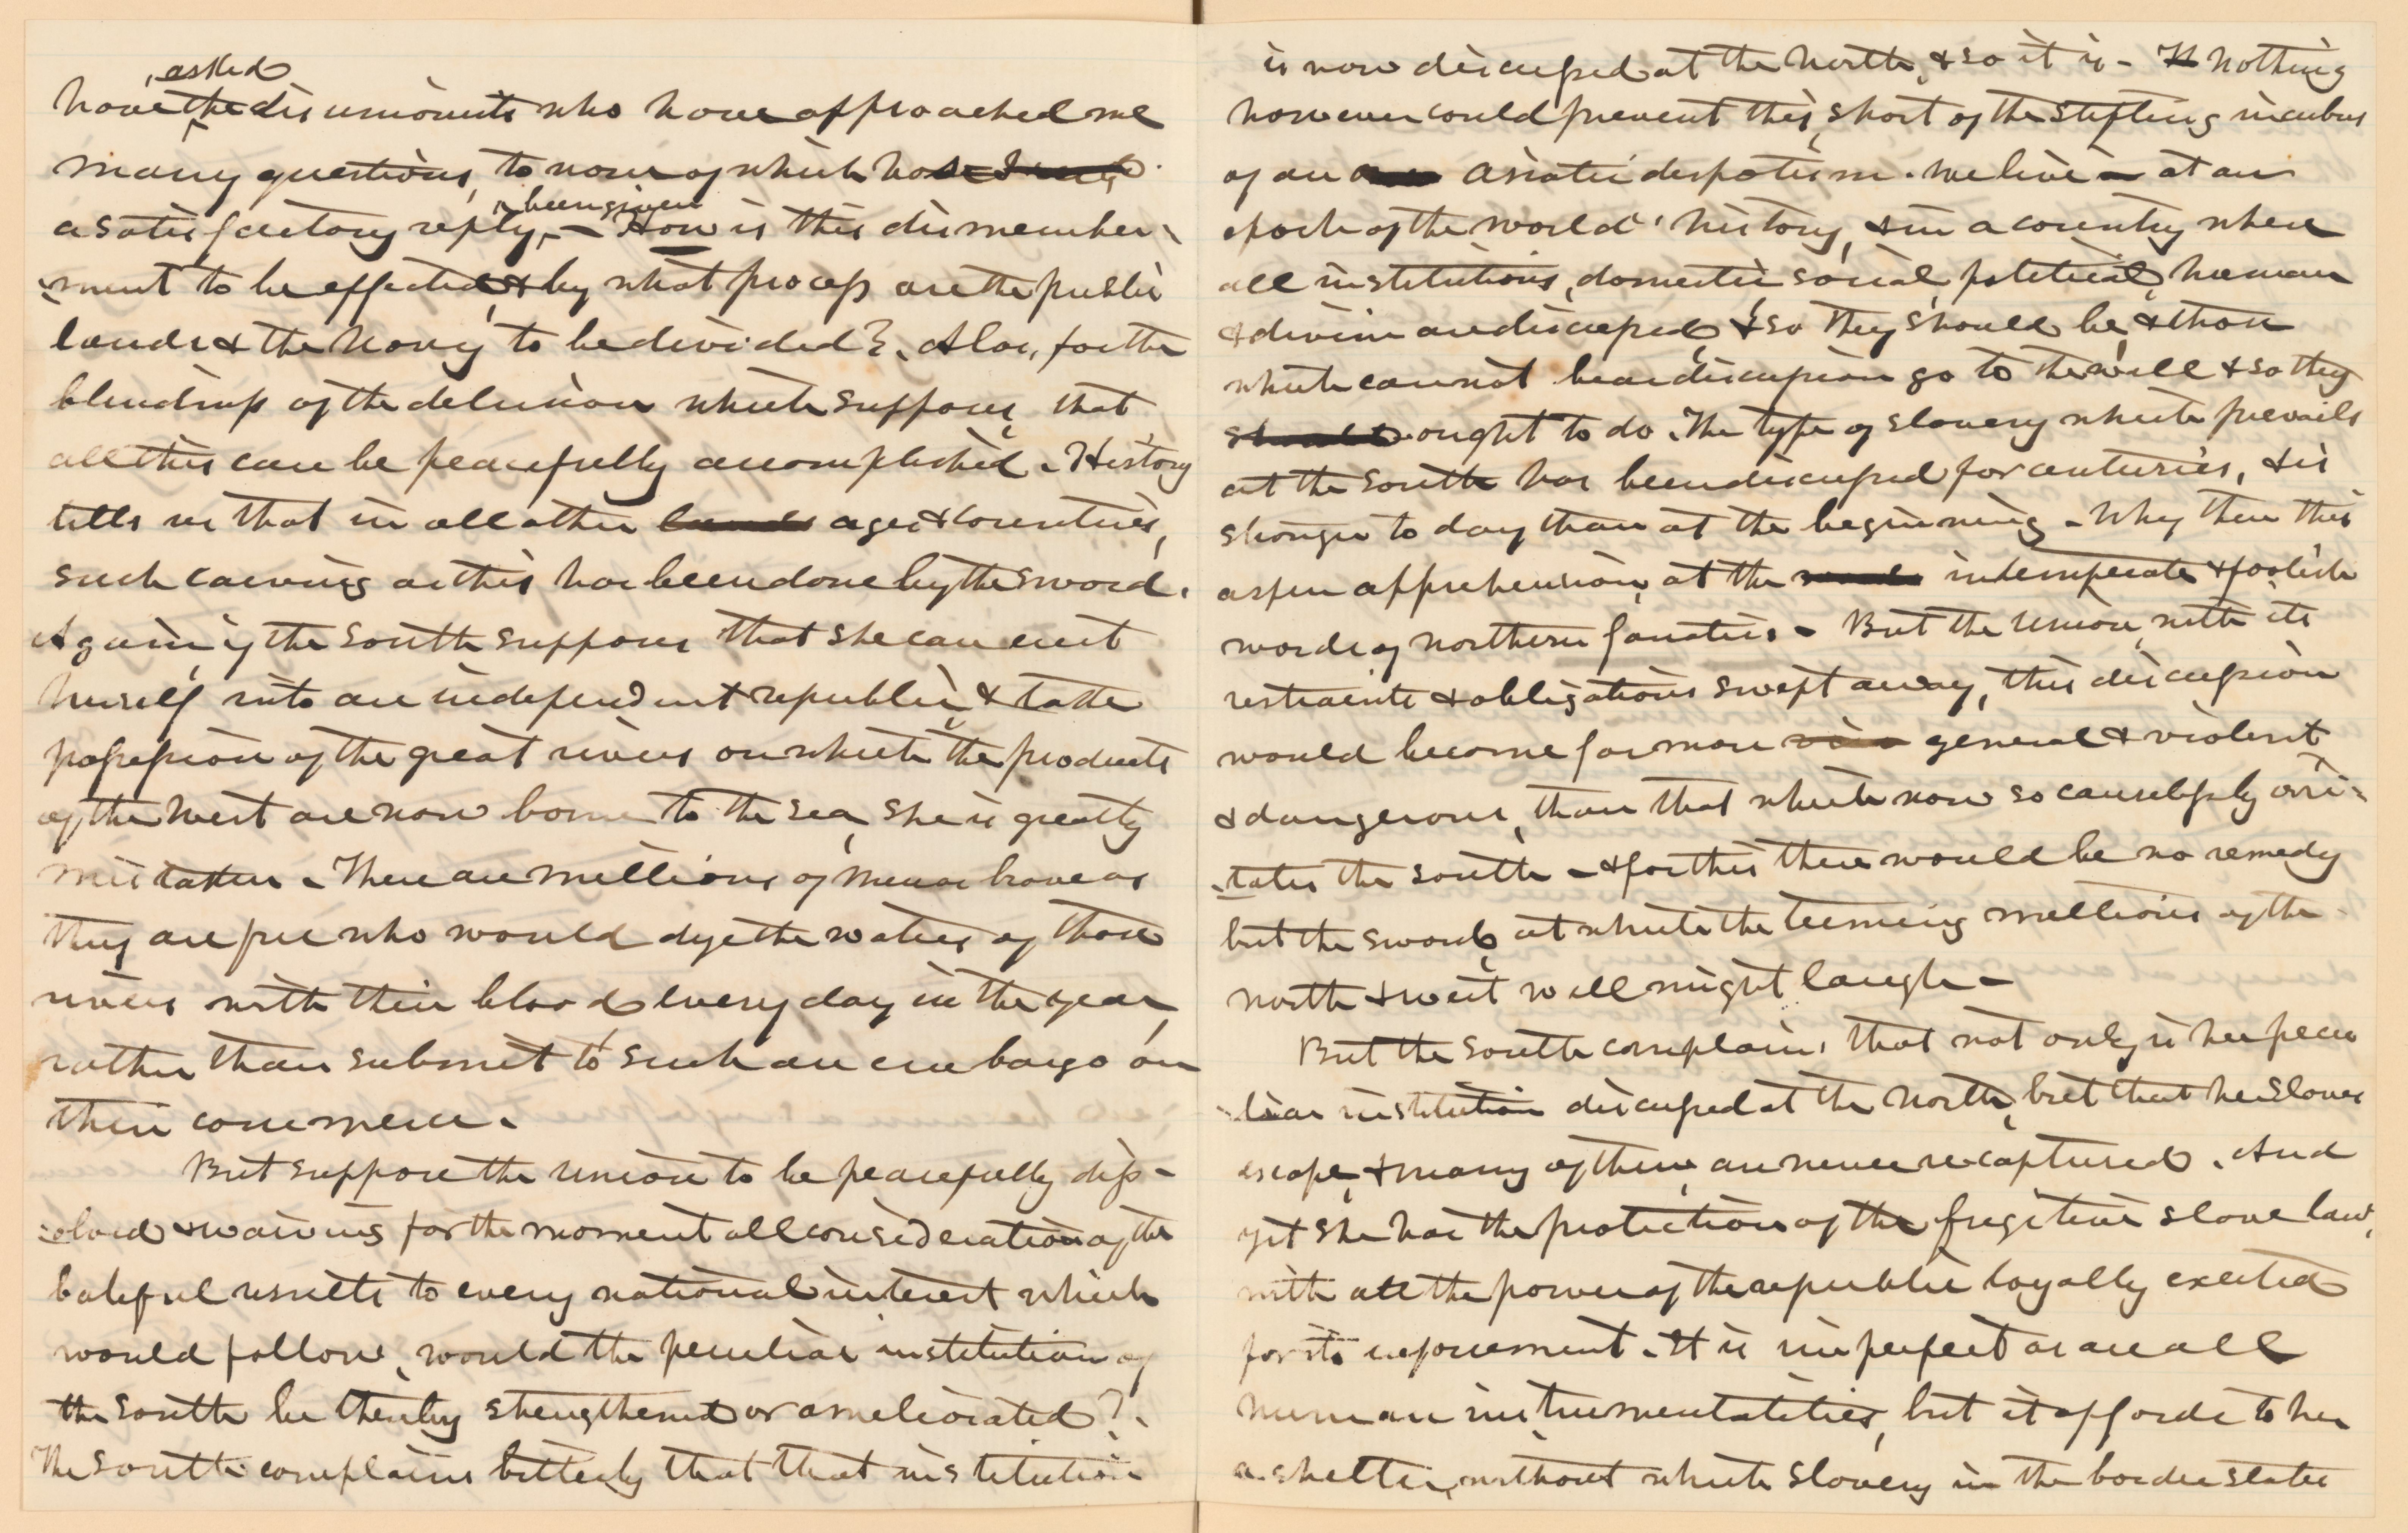 asked
have the disunionists who have approached me
many questions, to none of which has
been given
a satisfactory reply. – How is this dismember-
-ment to be effected, & by what process are the public
lands & the Navy to be divided? Alas, for the
blindness of the delusion which supposes, that
all this can be peacefully accomplished. History
tells us that in all other lands ages & countries,
such carving as this has been done by the sword.
Again, if the South supposes that she can erect
herself into an independent republic, & take
possession of the great rivers on which the products
of the West are now borne to the sea, she is greatly
mistaken. There are millions of men as brave as
they are free who would dye the waters of those
rivers with their blood every day in the year,
rather than submit to such an embargo on
their commerce.
But suppose the Union to be peacefully dis-
-solved & waiving for the moment all consideration of the
baleful results to every national interest which
would follow, would the peculiar institution of
the South be thereby strengthened or ameliorated?
The South complains bitterly that that institution
is now discussed at the North, & so it is – Nothing
however could prevent this, short of the stifling incubus
of an Asiatic despotism. We live – at an
epoch of the world's history, & in a country where
all institutions, domestic social, political, human
& divine are discussed, & so they should be, & those
which cannot bear discussion go to the wall & so they
should ought to do. The type of slavery which prevails
at the South has been discussed for centuries, & is
stronger to day than at the beginning. Why then this
aspen apprehension, at the words intemperate & foolish
words of northern fanatics – But the Union, with its
restraints & obligations swept away, this discussion
would become far more general & violent
& dangerous, than that which now so causelessly irri-
-tates the South – & for this there would be no remedy
but the sword, at which the teeming millions of the
north & west well might laugh –
But the South complains that not only is her pecu
-liar institution discussed at the North, but that her slaves
escape, & many of them, are never recaptured. And
yet she has the protection of the fugitive slave law,
with all the power of the republic loyally exerted
for its enforcement. It is imperfect as are all
human instrumentalities, but it affords to her
a shelter, without which slavery in the border states